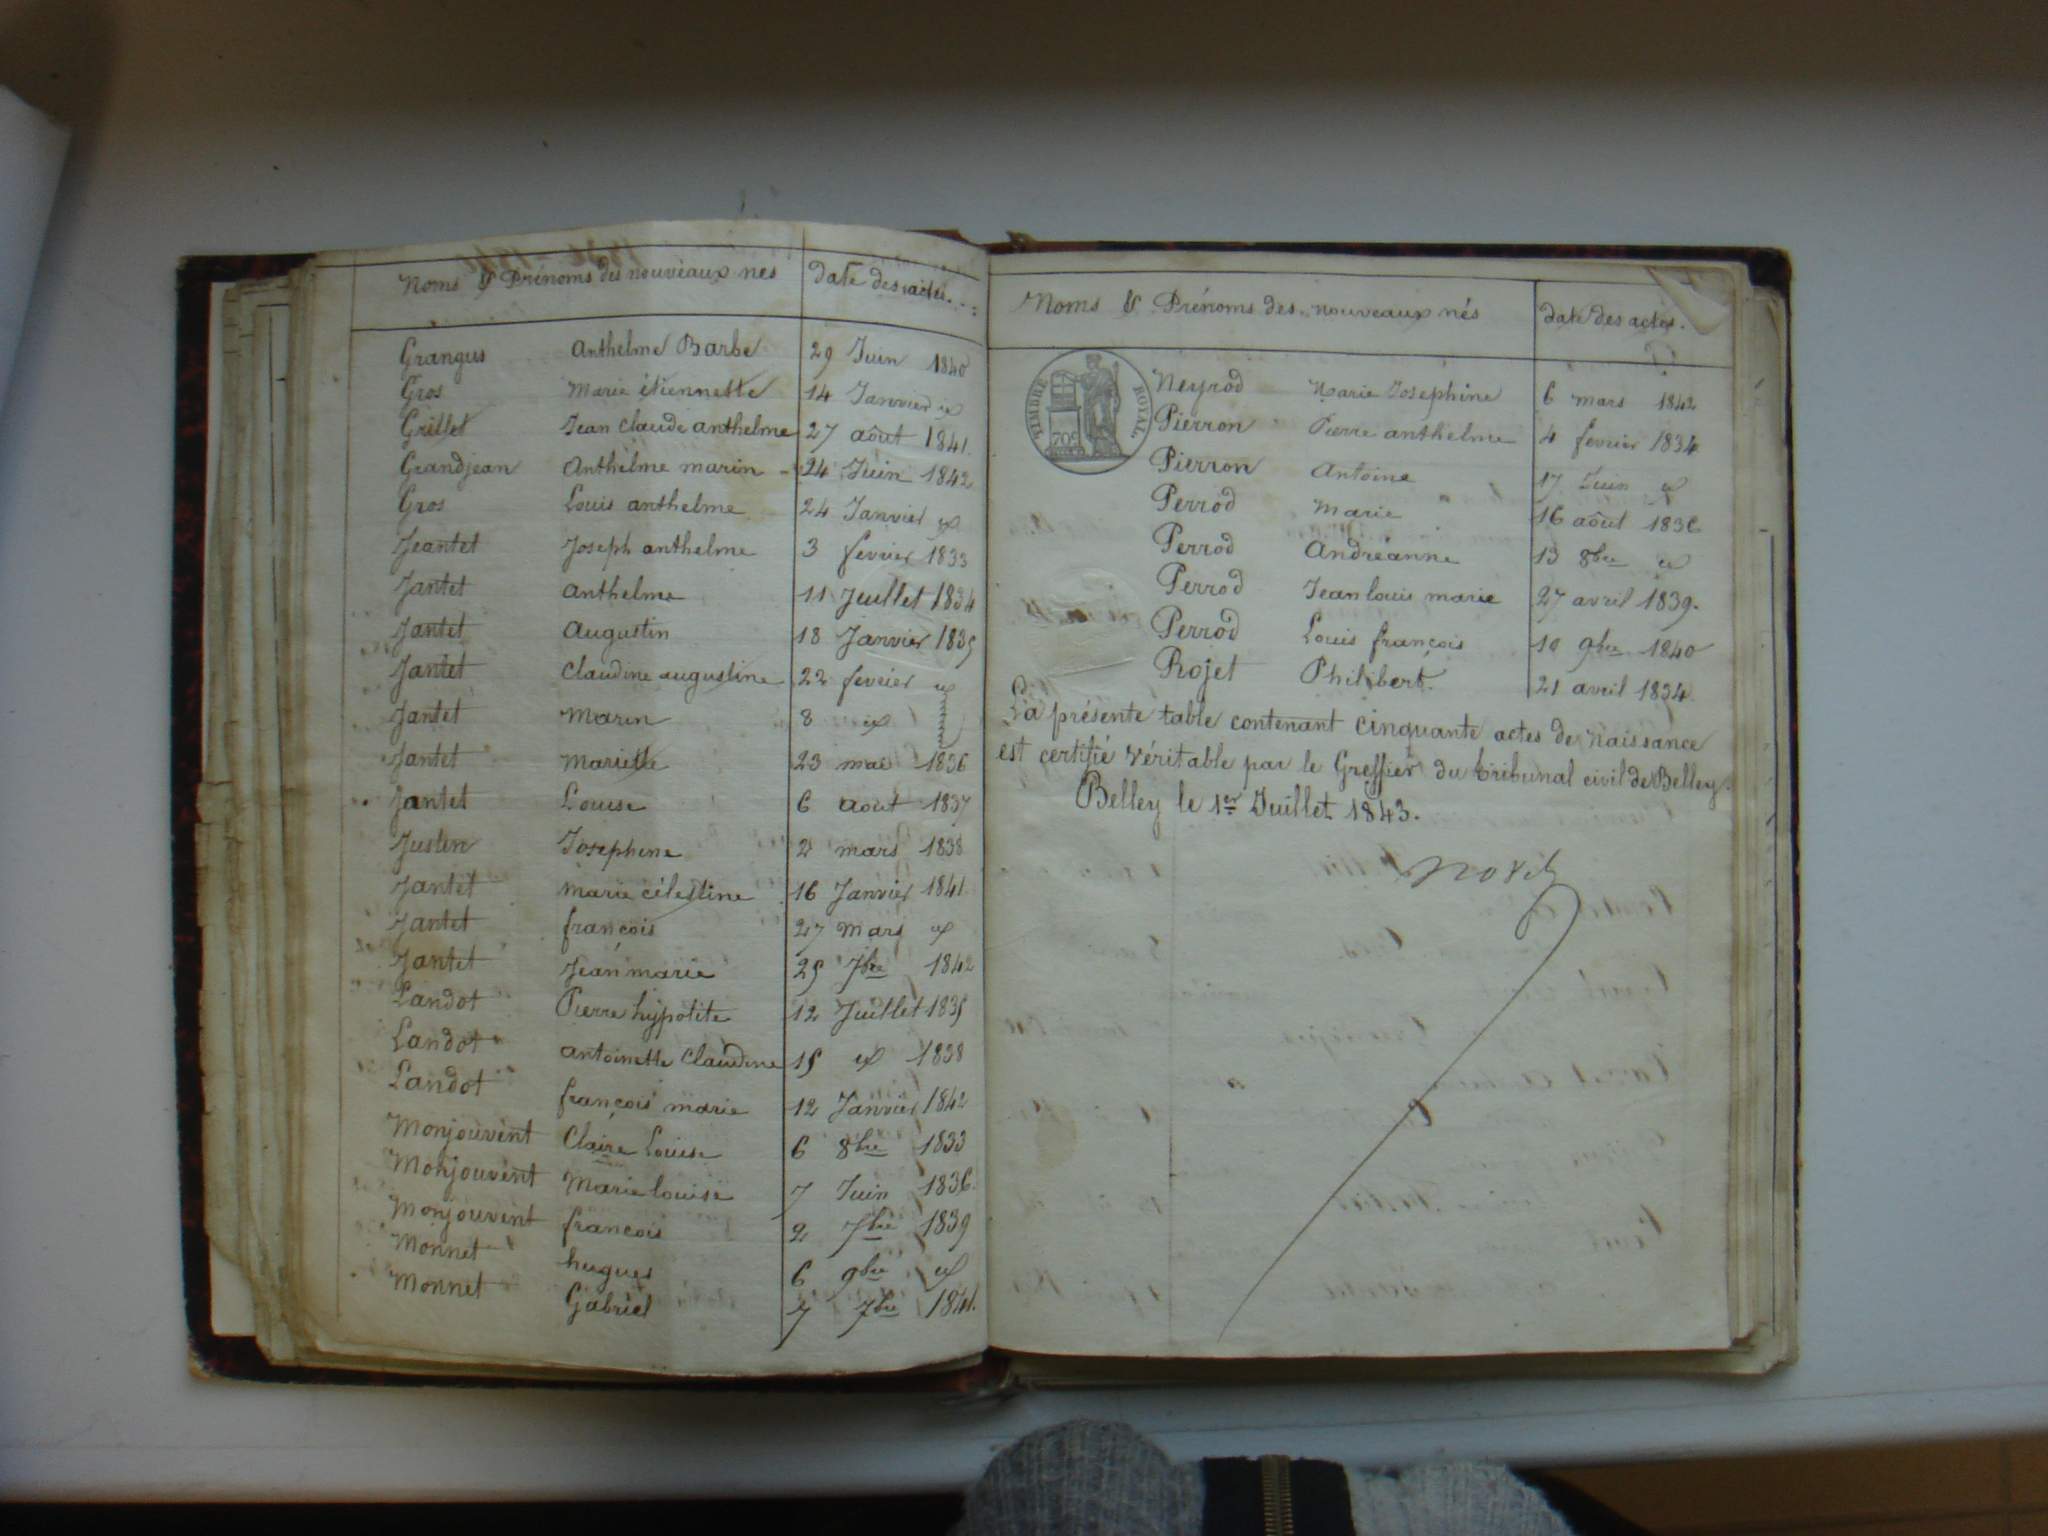 Noms & Prénoms des nouveaux nes date des actes
Grangus Anthelme Barbe 29 Juin 1840
Gros Marie étiennette 14 Janvier id
Grillet Jean Claude anthelme 27 août 1841.
Grandjean Anthelme marin 24 Juin 1842
Gros Louis anthelme 24 Janvier id
Jeantet Joseph anthelme 3 fevrier 1833
Jantet anthelme 11 Juillet 1834
Jantet augustin 18 Janvier 1835
Jantet Claudine augustine 22 fevrier id
Jantet Marin 8 id
Jantet Mariette 23 mai 1836
Jantet Louise 6 aout 1837
Justin Josephine 2 mars 1838
Jantet marie célestine 16 Janvier 1841.
Jantet françois 27 Mars id
Jantet Jean marie 25 7bre 1842
Landot Pierre hypolite 12 Juillet 1835
Landot antoinette Claudine 15 id 1838
Landot françois marie 12 Janvier 1842
Monjouvent Claire Louise 6 8bre 1833
Monjouvent Marie louise 7 Juin 1836.
Monjouvent francois 2 7bre 1839
Monnet hugues 6 9bre id
Monnet Gabriel 7 7bre 1841.
Noms & Prénoms des nouveaux nés date des actes.
TIMBRE ROYAL
70c
Neyrod Marie Josephine 6 mars 1842
Pierron Pierre anthelme 4 fevrier 1834
Pierron Antoine 17 Juin id
Perrod Marie 16 août 1836
Perrod Andréanne 13 8bre id
Perrod Jean louis marie 27 avril 1839.
Perrod Louis françois 10 9bre 1840
Rojet Philibert. 21 avril 1834.
La présente table contenant cinquante actes de naissance
est certifié véritable par le Greffier du tribunal civil de Belley.
Belley le 1er Juillet 1843.